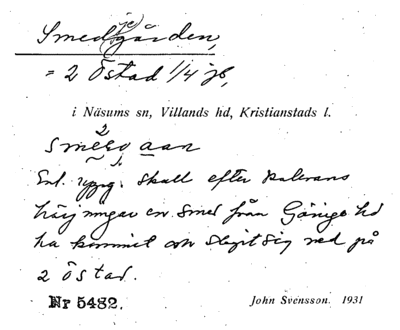 Smed(je)gården,
= 2 Östad 1/4
i Näsums sn, Villands hd, Kristianstads l.
Enl. uppg. skall efter
en smed från Göinge hd
ha kommit och slagit sig ned på
2 Östad.
Nr 5482. John Svensson. 1931